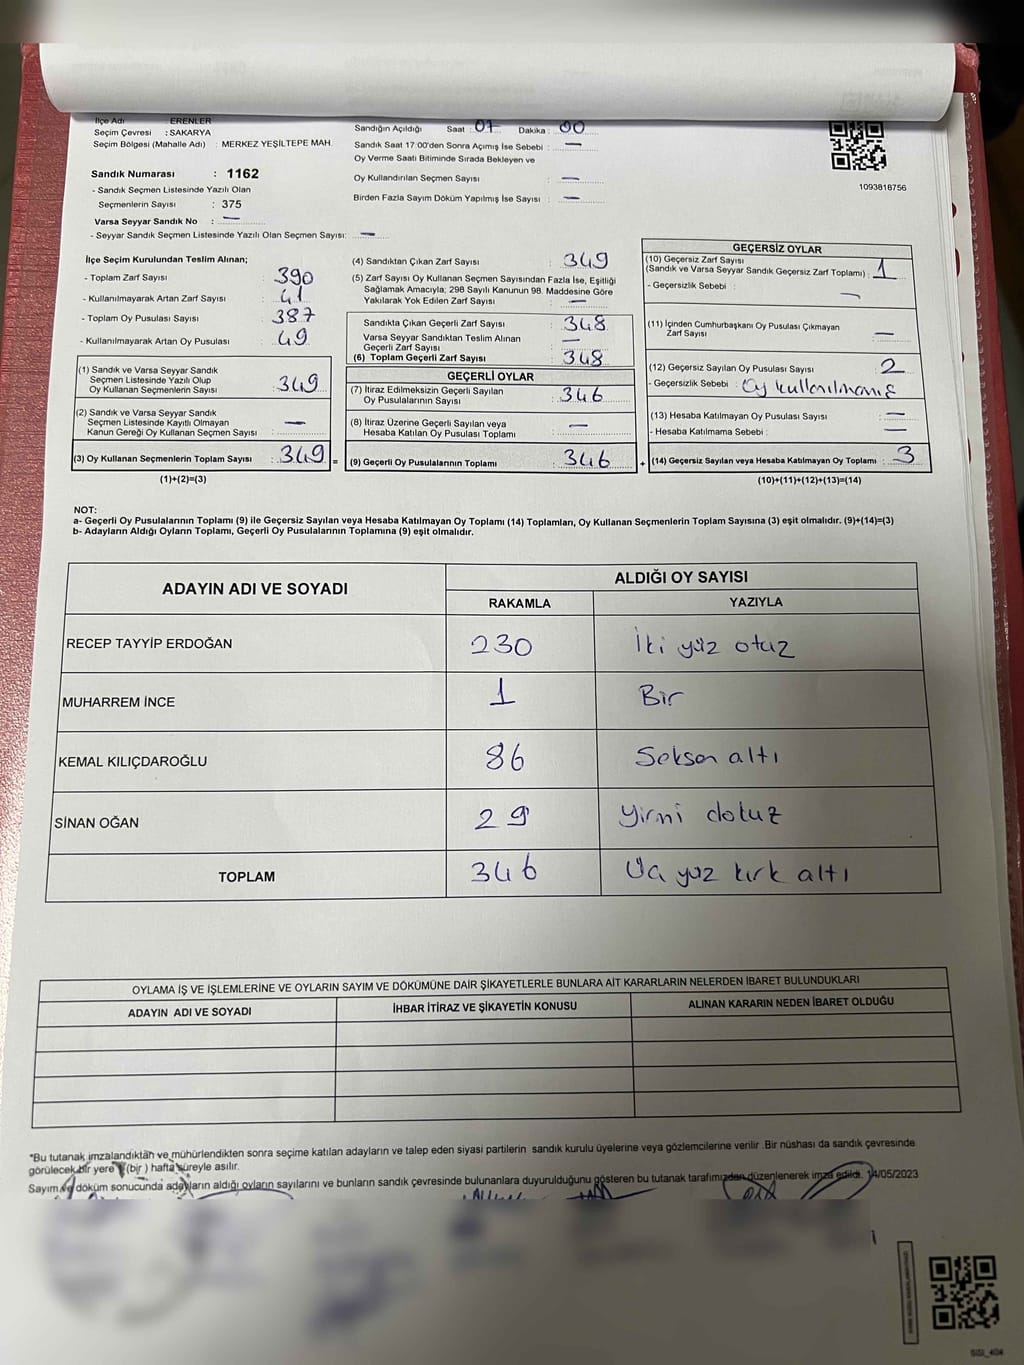 İlçe Adı : ERENLER
Seçim Çevresi : SAKARYA
Seçim Bölgesi (Mahalle Adı) : MERKEZ YEŞİLTEPE MAH.
Sandık Numarası : 1162
- Sandık Seçmen Listesinde Yazılı Olan
Seçmenlerin Sayısı : 375
Varsa Seyyar Sandık No : —
- Seyyar Sandık Seçmen Listesinde Yazılı Olan Seçmen Sayısı: —
Sandığın Açıldığı Saat : 07 Dakika : 00
Sandık Saat 17:00'den Sonra Açımış İse Sebebi : —
Oy Verme Saati Bitiminde Sırada Bekleyen ve
Oy Kullandırılan Seçmen Sayısı : —
Birden Fazla Sayım Döküm Yapılmış İse Sayısı : —
1093818756
İlçe Seçim Kurulundan Teslim Alınan;
- Toplam Zarf Sayısı : 390
- Kullanılmayarak Artan Zarf Sayısı : 41
- Toplam Oy Pusulası Sayısı : 387
- Kullanılmayarak Artan Oy Pusulası : 49
(1) Sandık ve Varsa Seyyar Sandık
Seçmen Listesinde Yazılı Olup
Oy Kullanan Seçmenlerin Sayısı : 349
(2) Sandık ve Varsa Seyyar Sandık
Seçmen Listesinde Kayıtlı Olmayan
Kanun Gereği Oy Kullanan Seçmen Sayısı : —
(3) Oy Kullanan Seçmenlerin Toplam Sayısı : 349 =
(1)+(2)=(3)
(4) Sandıktan Çıkan Zarf Sayısı : 349
(5) Zarf Sayısı Oy Kullanan Seçmen Sayısından Fazla İse, Eşitliği
Sağlamak Amacıyla; 298 Sayılı Kanunun 98. Maddesine Göre
Yakılarak Yok Edilen Zarf Sayısı : —
Sandıkta Çıkan Geçerli Zarf Sayısı : 348
Varsa Seyyar Sandıktan Teslim Alınan
Geçerli Zarf Sayısı : —
(6) Toplam Geçerli Zarf Sayısı : 348
GEÇERLİ OYLAR
(7) İtiraz Edilmeksizin Geçerli Sayılan
Oy Pusulalarının Sayısı : 346
(8) İtiraz Üzerine Geçerli Sayılan veya
Hesaba Katılan Oy Pusulası Toplamı : —
(9) Geçerli Oy Pusulalarının Toplamı : 346 +
GEÇERSİZ OYLAR
(10) Geçersiz Zarf Sayısı
(Sandık ve Varsa Seyyar Sandık Geçersiz Zarf Toplamı) : 1
- Geçersizlik Sebebi : —
(11) İçinden Cumhurbaşkanı Oy Pusulası Çıkmayan
Zarf Sayısı : —
(12) Geçersiz Sayılan Oy Pusulası Sayısı : 2
- Geçersizlik Sebebi : Oy kullanılmamış
(13) Hesaba Katılmayan Oy Pusulası Sayısı : —
- Hesaba Katılmama Sebebi : —
(14) Geçersiz Sayılan veya Hesaba Katılmayan Oy Toplamı : 3
(10)+(11)+(12)+(13)=(14)
NOT:
a- Geçerli Oy Pusulalarının Toplamı (9) ile Geçersiz Sayılan veya Hesaba Katılmayan Oy Toplamı (14) Toplamları, Oy Kullanan Seçmenlerin Toplam Sayısına (3) eşit olmalıdır. (9)+(14)=(3)
b- Adayların Aldığı Oyların Toplamı, Geçerli Oy Pusulalarının Toplamına (9) eşit olmalıdır.
ADAYIN ADI VE SOYADI ALDIĞI OY SAYISI
RAKAMLA YAZIYLA
RECEP TAYYİP ERDOĞAN 230 İki yüz otuz
MUHARREM İNCE 1 Bir
KEMAL KILIÇDAROĞLU 86 Seksen altı
SİNAN OĞAN 29 Yirmi dokuz
TOPLAM 346 Üç yüz kırk altı
OYLAMA İŞ VE İŞLEMLERİNE VE OYLARIN SAYIM VE DÖKÜMÜNE DAİR ŞİKAYETLERLE BUNLARA AİT KARARLARIN NELERDEN İBARET BULUNDUKLARI
ADAYIN ADI VE SOYADI İHBAR İTİRAZ VE ŞİKAYETİN KONUSU ALINAN KARARIN NEDEN İBARET OLDUĞU
*Bu tutanak imzalandıktan ve mühürlendikten sonra seçime katılan adayların ve talep eden siyasi partilerin sandık kurulu üyelerine veya gözlemcilerine verilir .Bir nüshası da sandık çevresinde
görülecek bir yere 1 (bir ) hafta süreyle asılır.
Sayım ve döküm sonucunda adayların aldığı oyların sayılarını ve bunların sandık çevresinde bulunanlara duyurulduğunu gösteren bu tutanak tarafımızdan düzenlenerek imza edildi. 14/05/2023